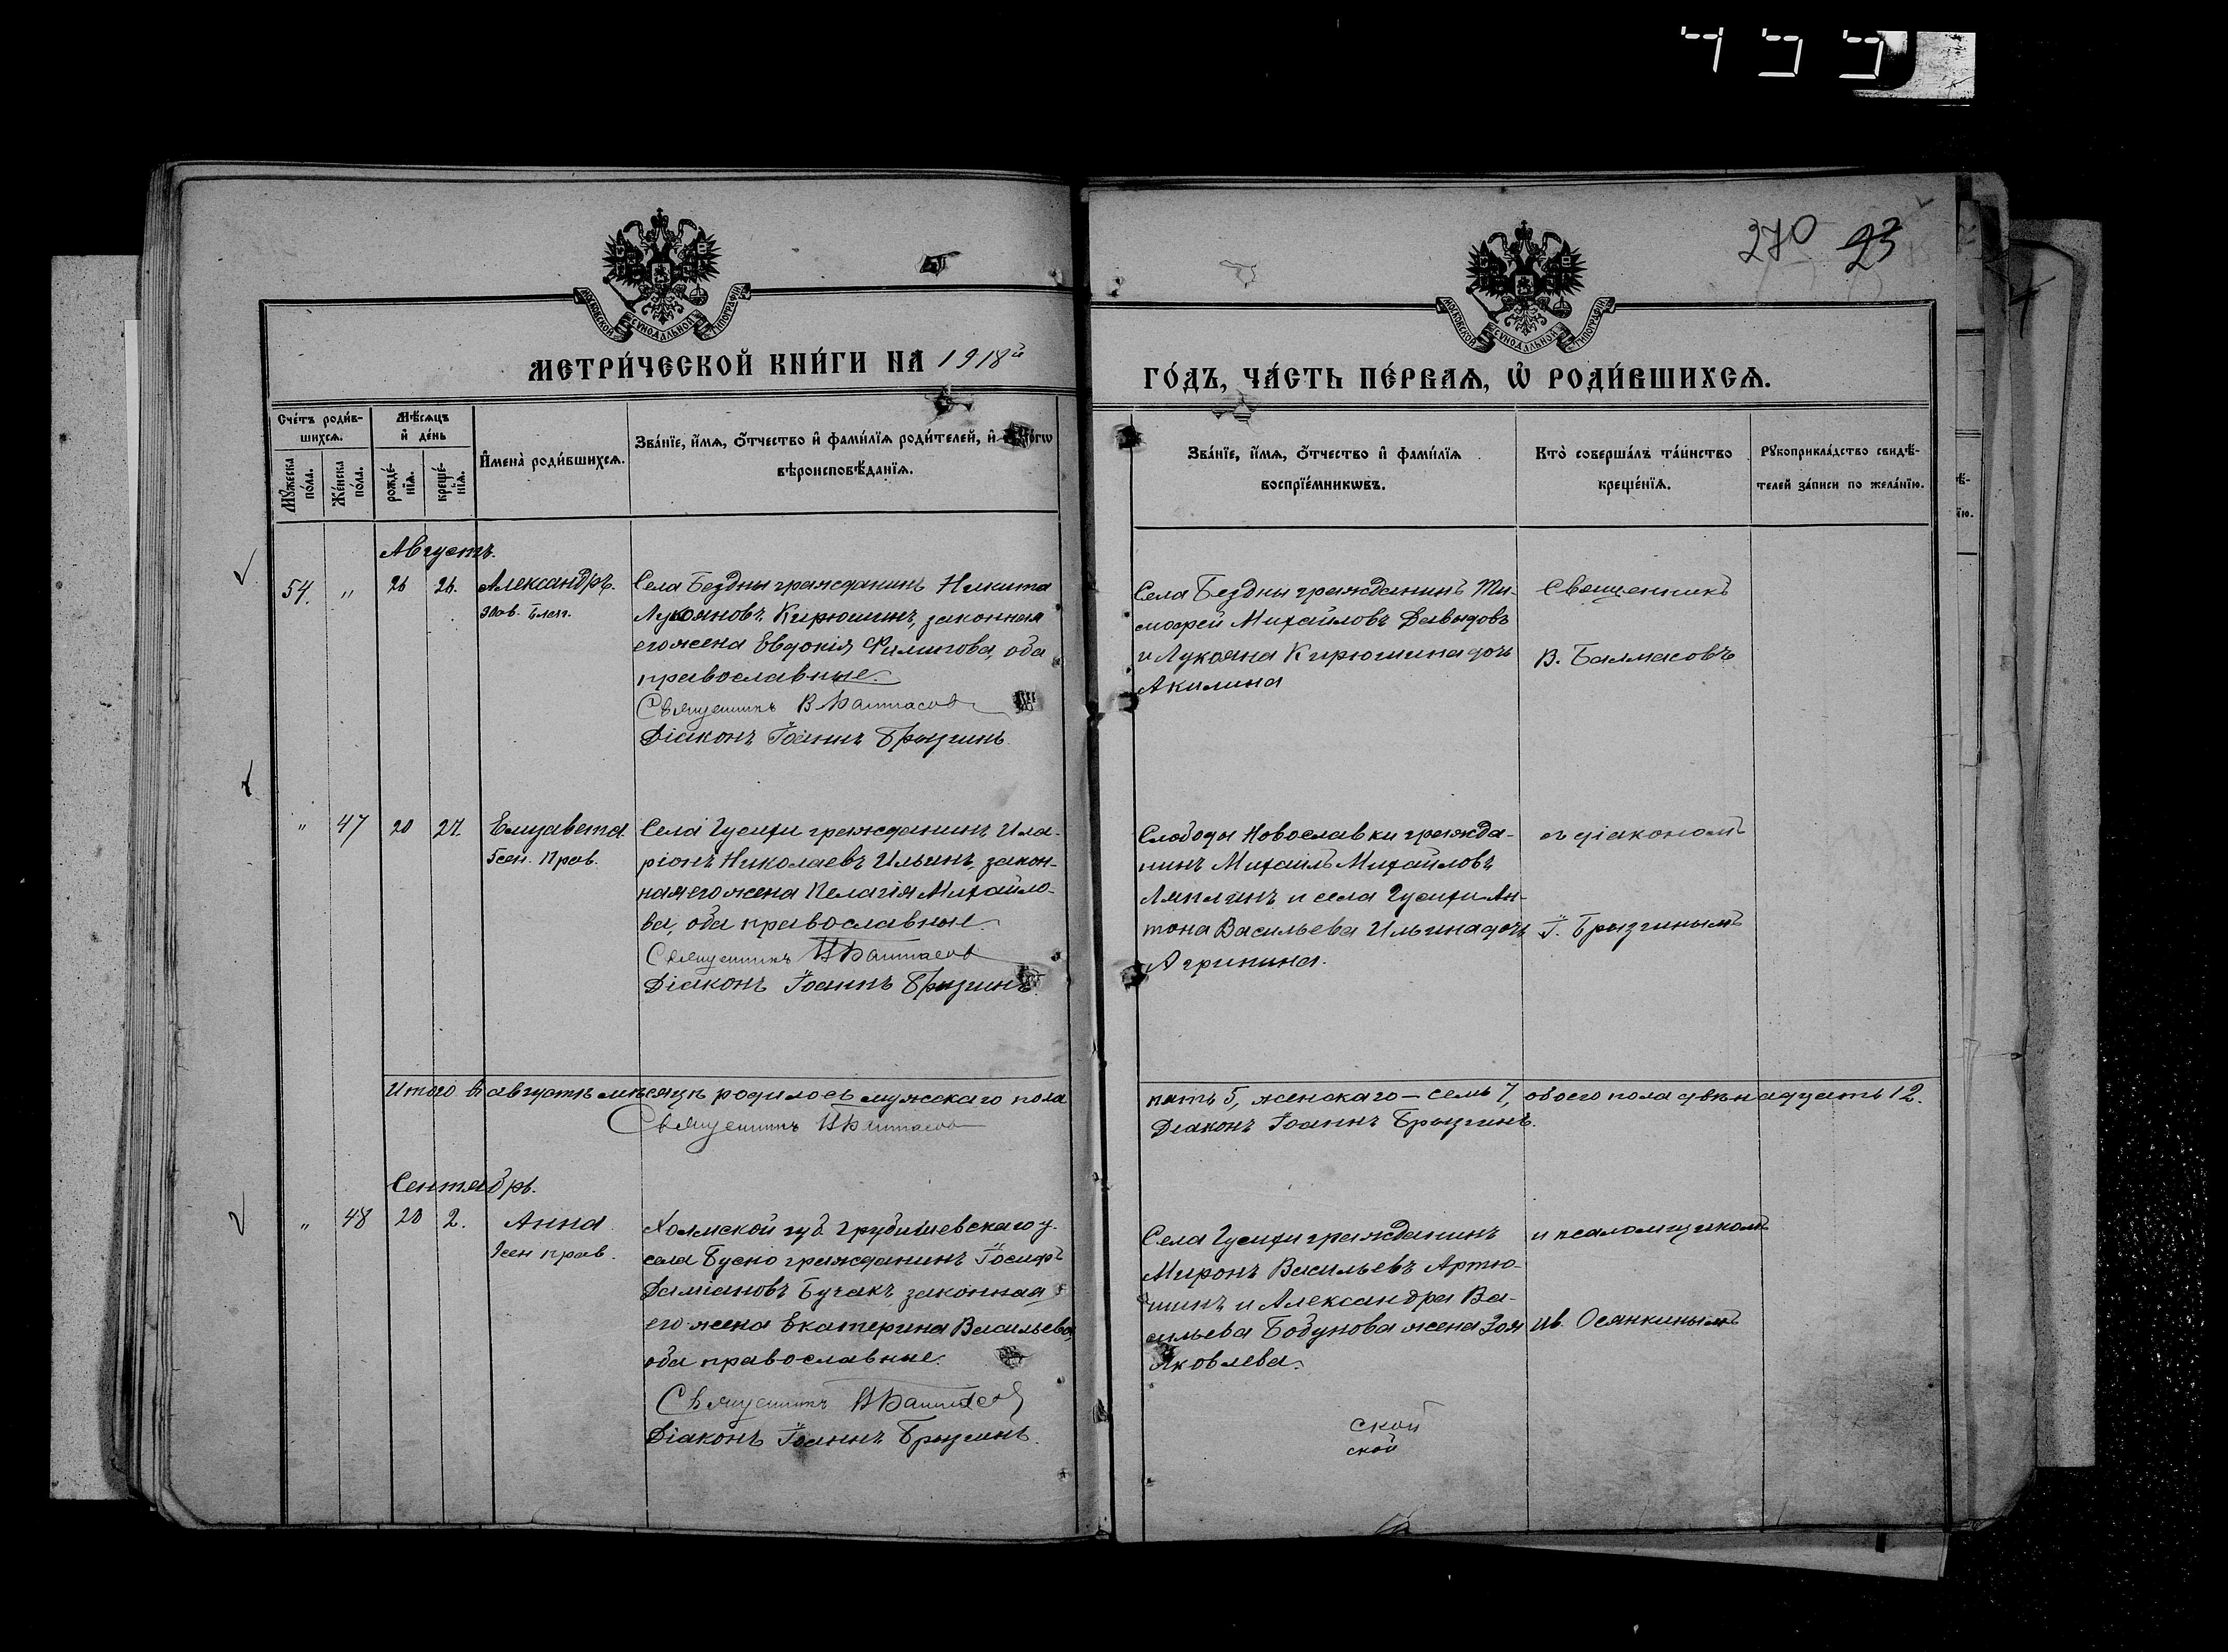 270 23
МОСКОВСКОЙ СѴНОДАЛЬНОЙ ТИПОГРАФІИ
МОСКОВСКОЙ СѴНОДАЛЬНОЙ ТИПОГРАФІИ
МЕТРИ́ЧЕСКОЙ КНИ́ГИ НА 1918й
ГО́ДЪ, ЧА́СТЬ ПЕ́РВАѦ, Ѡ҆ РОДИ́ВШИХСѦ.
Сче́тъ роди́в-
шихсѧ.
Мꙋ́жеска по́ла.
Же́нска по́ла.
Мѣ́сѧцъ
и҆ де́нь
рожде́-
нїѧ.
креще́-
нїѧ.
И҆мена̀ роди́вшихсѧ.
Зва́нїе, и҆́мѧ, ѻ҆́тчество и҆ фами́лїѧ роди́телей, и҆
вѣроисповѣ́данїѧ.
Зва́нїе, и҆́мѧ, ѻ҆́тчество и҆ фами́лїѧ
воспрїе́мникѡвъ.
Кто̀ соверша́лъ та́инство
креще́нїѧ.
Рꙋкоприкла́дство свидѣ́-
телей за́писи по жела́нїю.
Августъ.
54. " 26 26. Александръ.
Села Бездны гражданинъ Никита
Лукояновъ Кирюшинъ, законная
его жена Евдокія Филипова, оба
православные.
Священникъ В Балмасов
Діаконъ Іоаннъ Брызгинъ.
Села Бездны гражданинъ Ти-
мофей Михайловъ Давыдовъ
и Лукояна Кирюшина дочь
Акилина
Священникъ
В. Балмасовъ
" 47 20 27. Елизавета.
Прав.
Села Гусихи гражданинъ Ила-
ріонъ Николаевъ Ильинъ, закон-
ная его жена Пелагія Михайло-
ва, оба православные.
Священникъ В Балмасов
Діаконъ Іоаннъ Брызгинъ.
Слободы Новославки гражда-
нинъ Михаилъ Михайловъ
Ляплинъ и села Гусихи Ан-
тона Васильева Ильина дочь
Агрипина.
съ діакономъ
І. Брызгинымъ
Итого въ августѣ мѣсяцѣ родилось мужскаго пола
пять 5, женскаго – семь 7, обоего пола двѣнадцать 12.
Священникъ В Балмасов
Діаконъ Іоаннъ Брызгинъ.
Сентябрь.
" 48 20 2. Анна
прав.
Холмской губ Грубишевскаго у.
села Буско гражданинъ Іосифъ
Даміановъ Бучакъ законная
его жена Екатерина Васильева,
оба православные.
Священникъ В Балмасов
Діаконъ Іоаннъ Брызгинъ.
Села Гусихи гражданинъ
Миронъ Васильевъ Артю-
шинъ и Александра Ва-
сильева Бобунова жена Зоя
Яковлева.
и псаломщикомъ
Ив. Осянкинымъ
ской
ской